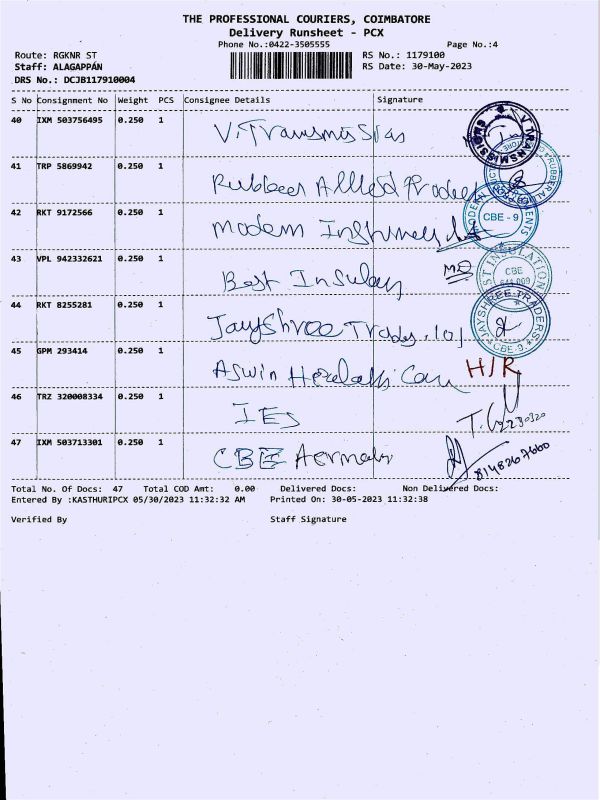 THE PROFESSIONAL COURIERS, COIMBATORE
Delivery Runsheet - PCX
Phone No.:0422-3505555
Page No.:4
Route: RGKNR ST
RS No.: 1179100
Staff: ALAGAPPAN
RS Date: 30-May-2023
DRS No.: DCJB117910004
S No Consignment No Weight PCS Consignee Details Signature
40 IXM 503756495 0.250 1 V. Transmissions
V TRANSMISSIONS
41 TRP 5869942 0.250 1 Rubber Allied
42 RKT 9172566 0.250 1 Modern
CBE - 9
43 VPL 942332621 0.250 1 Best
ST INSULATION
CBE
44 RKT 8255281 0.250 1 Jayshree
JAYSHREE TRADERS
CBE-9
45 GPM 293414 0.250 1 Aswin
H/R
46 TRZ 320008334 0.250 1 IES
47 IXM 503713301 0.250 1 CBE
8148267660
Total No. Of Docs: 47 Total COD Amt: 0.00 Delivered Docs: Non Delivered Docs:
Entered By :KASTHURIPCX 05/30/2023 11:32:32 AM Printed On: 30-05-2023 11:32:38
Verified By Staff Signature